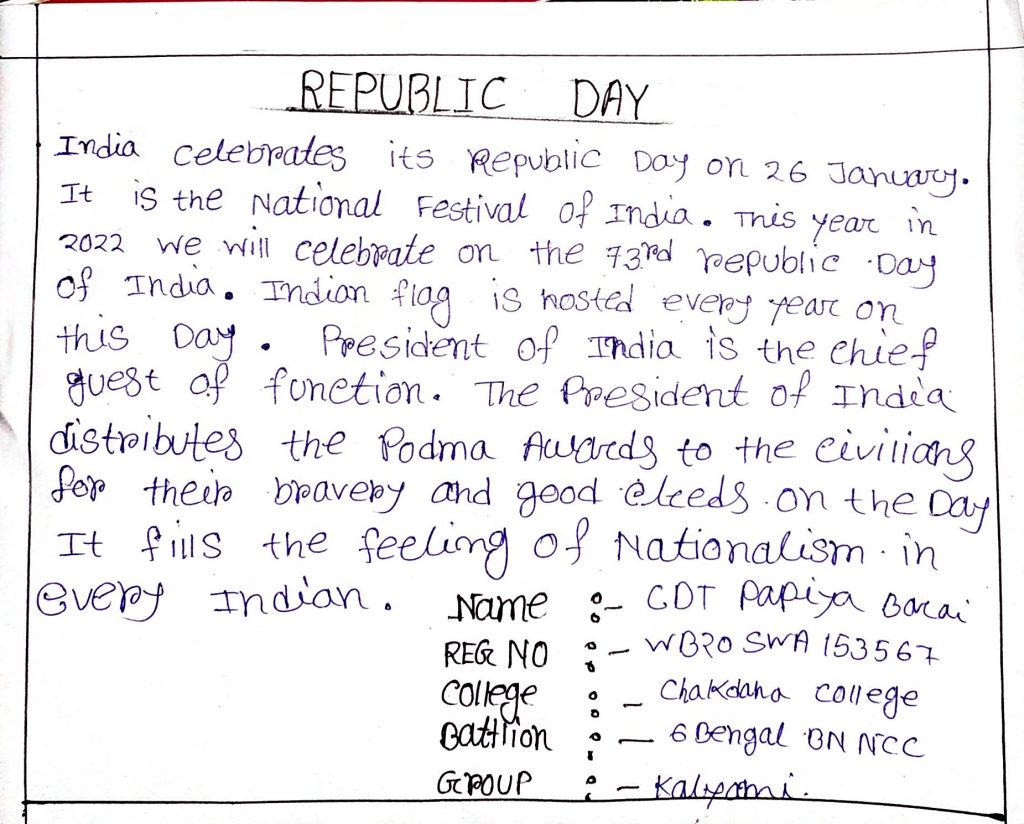 REPUBLIC DAY
India celebrates its Republic Day on 26 January.
It is the National Festival of India. This year in
2022 we will celebrate on the 73rd republic Day
of India. Indian flag is hosted every year on
this Day. President of India is the chief
guest of function. The President of India
distributes the Podma Awards to the civilians
for their bravery and good deeds on the Day
It fills the feeling of Nationalism in
every Indian.
Name :- CDT Papiya Barai
REG NO :- WB20 SWA 153567
College :- Chakdaha College
Battlion :- 6 Bengal BN NCC
GROUP :- Kalyani.